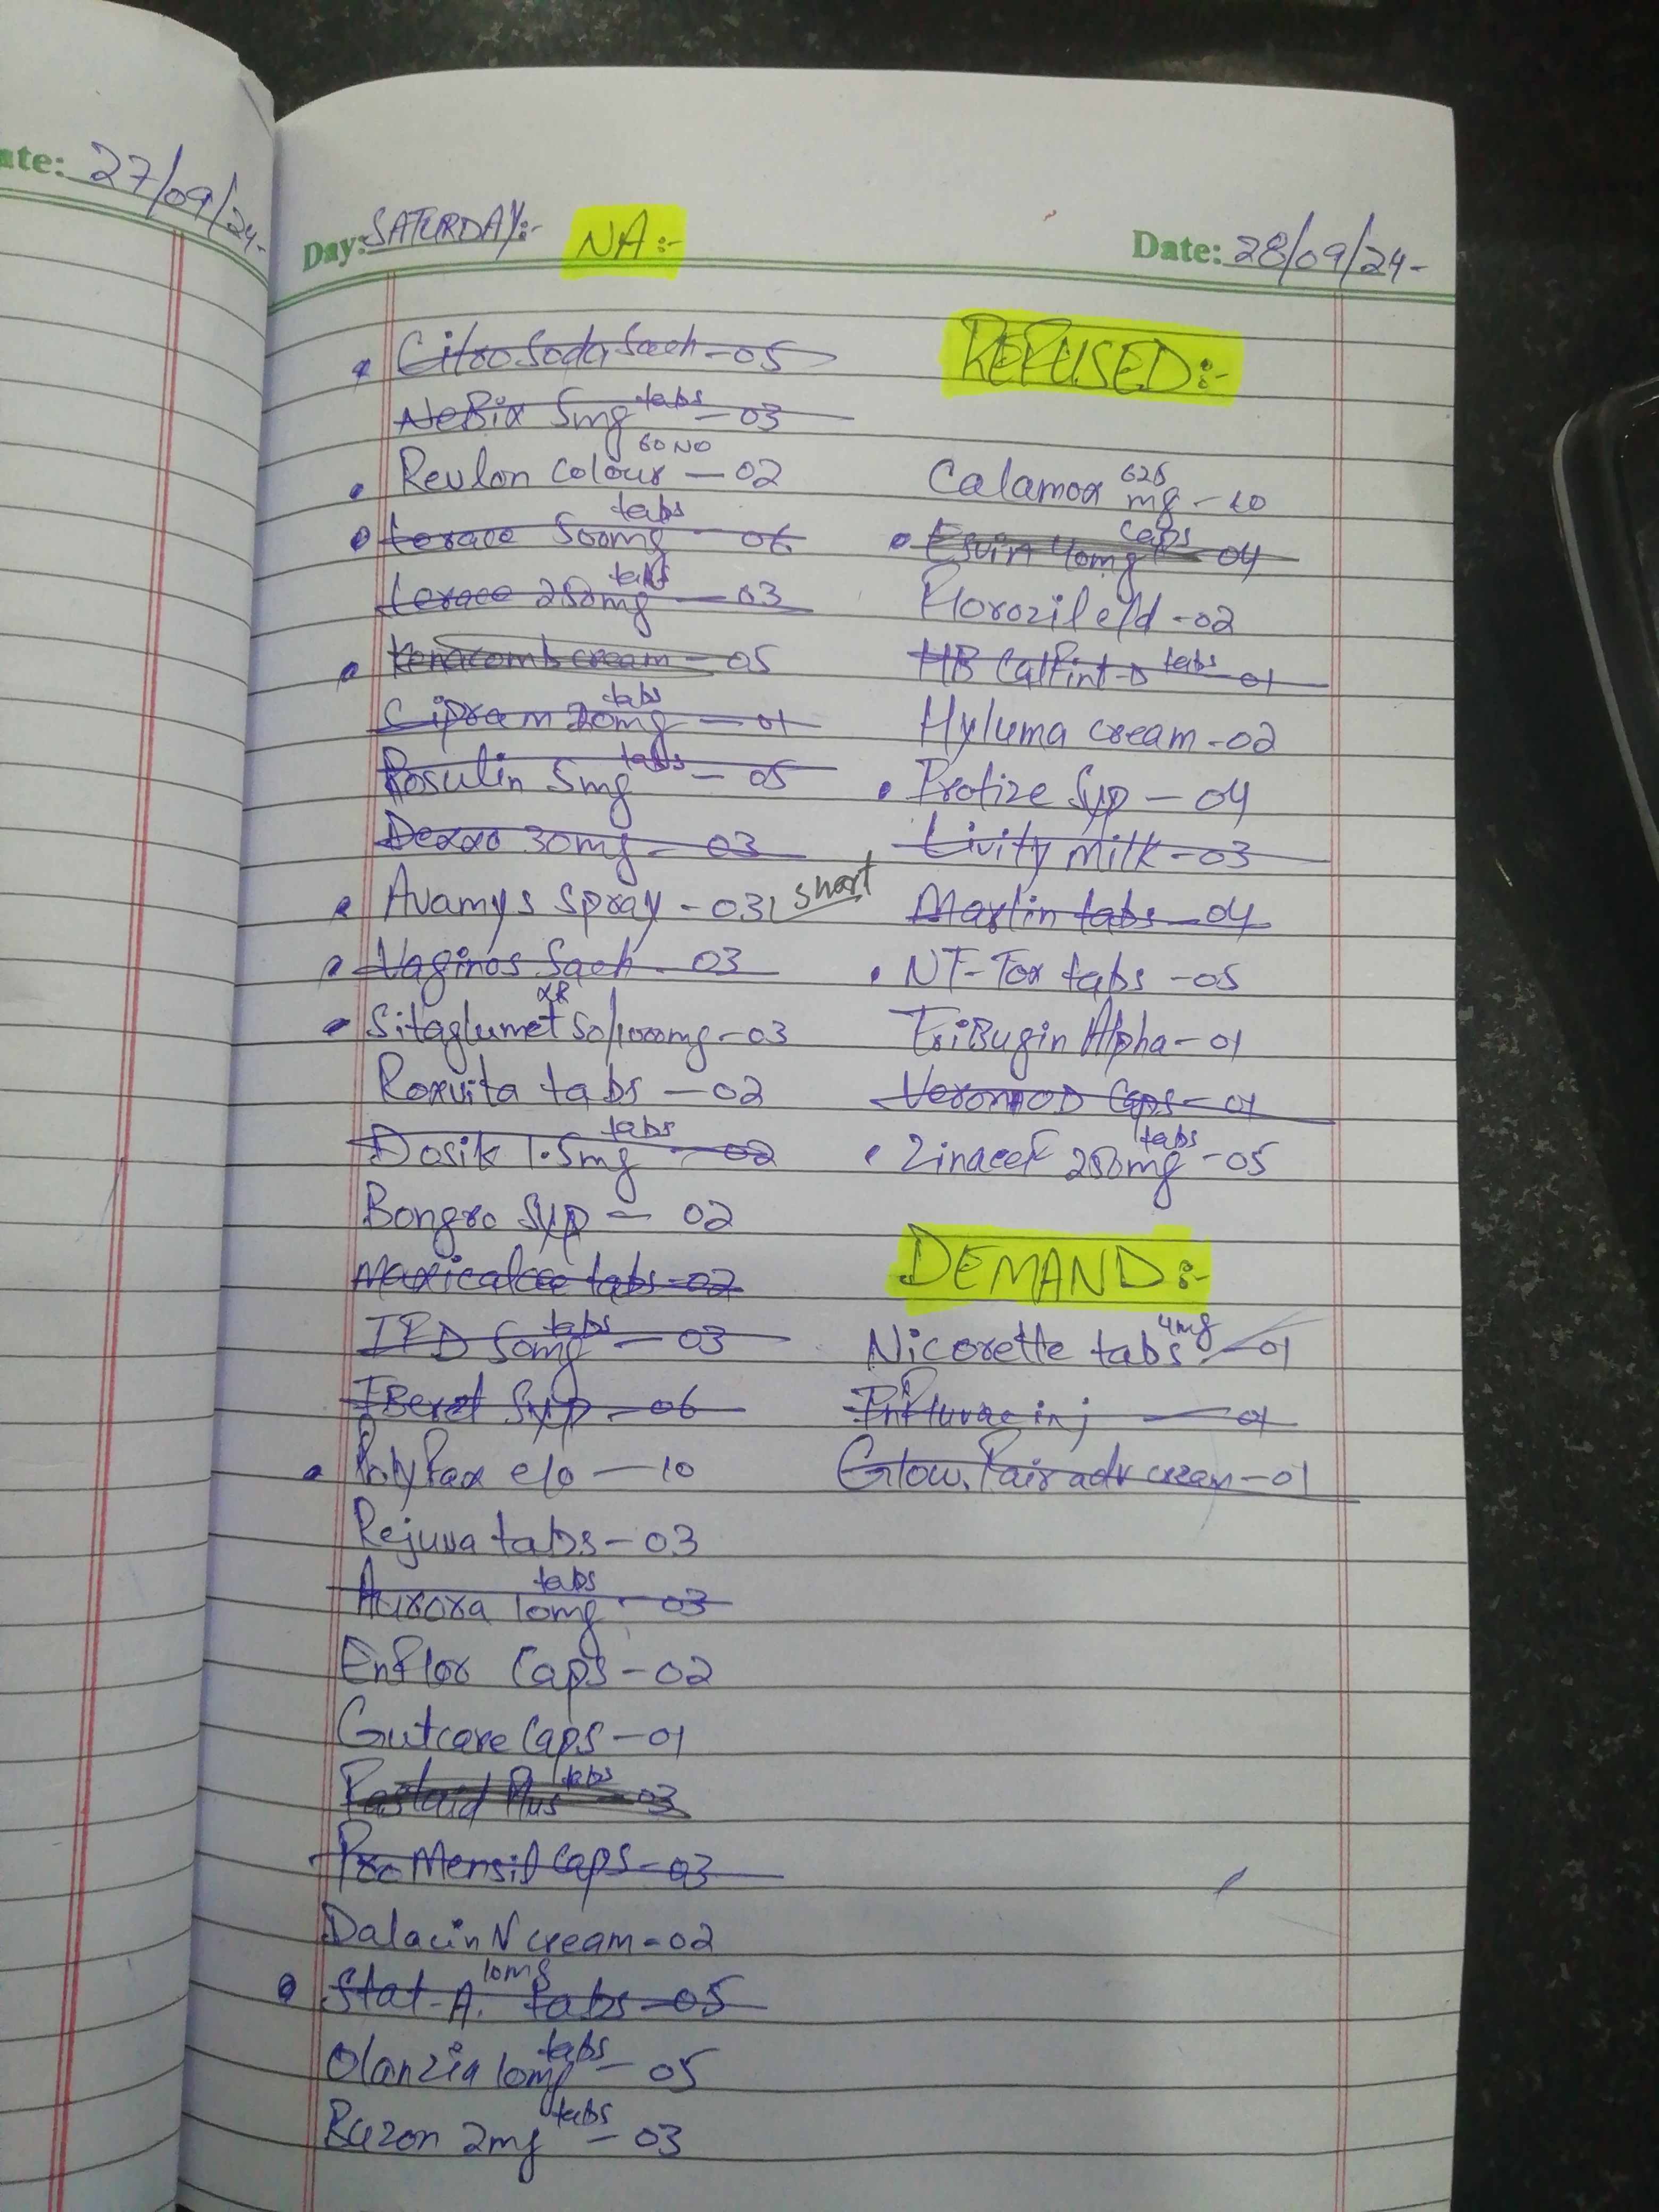 Date: 27/09/24-
Day: SATURDAY:- NA:- Date: 28/09/24-
CitroSoda Sach - 05
NeBix 5mg tabs - 03
Revlon Colour 60 NO - 02
Lerace 500mg tabs - 06
Lerace 250mg tabs - 03
Kenacomb cream - 05
Cipram 20mg tabs - 01
Rosulin 5mg tabs - 05
Dexxo 30mg - 03
Avamys Spray - 03 short
Vaginos Sach - 03
Sitaglumet XR 50/1000mg - 03
Roxvita tabs - 02
Dosik 1.5mg tabs - 02
Bongro Syp - 02
Maxicalcee tabs - 02
IPD 50mg tabs - 03
IBeret Syp - 06
PolyFax e/o - 10
Rejuva tabs - 03
Aurora 10mg tabs - 03
EnFlor Caps - 02
Gutcare Caps - 01
Fastaid Plus tabs - 03
Pro Mensil Caps - 03
Dalacin V cream - 02
Stat-A. 10mg tabs - 05
Olanzia 10mg tabs - 05
Bazon 2mg tabs - 03
REFUSED:-
Calamox 625 mg - 10
Esvin 40mg caps - 04
Florozil e/d - 02
HB CalFint-D tabs - 01
Hyluma cream - 02
Protize Syp - 04
Livity Milk - 03
Maxlin tabs - 04
NT-Tox tabs - 05
TriBugin Alpha - 01
VeronOD Caps - 01
Zinacef 250mg tabs - 05
DEMAND:-
Nicorette tabs 4mg - 01
InFluvac inj - 01
Glow. Fair adv cream - 01